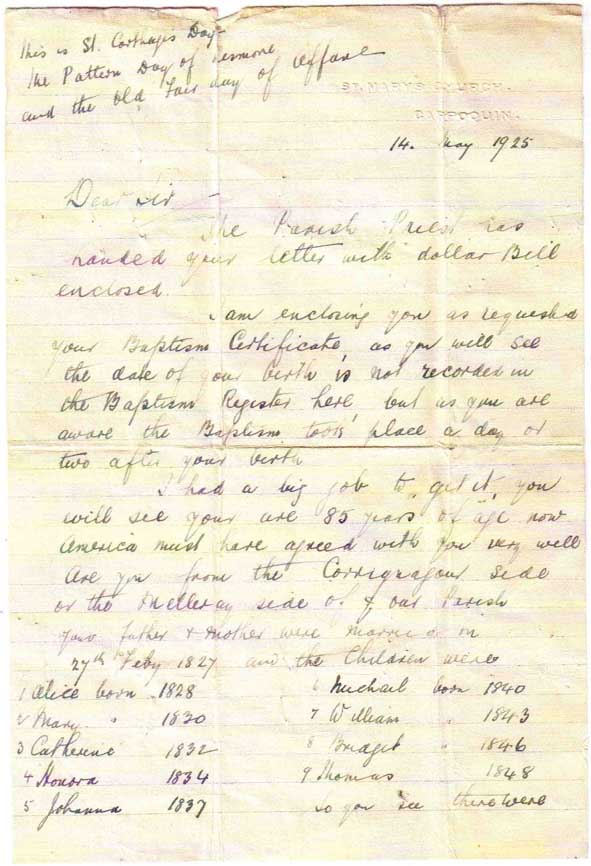 This is St. Carthages Day-
the Pattern Day of Lismore
and the old Fair day of Affane
ST. MARY'S CHURCH.
CAPPOQUIN.
14. May 1925
Dear Sir -
The Parish Priest has
handed your letter with dollar Bill
enclosed.
I am enclosing you as requested
your Baptism Certificate, as you will see
the date of your birth is not recorded in
the Baptism Register here, but as you are
aware the Baptism took place a day or
two after your birth
I had a big job to get it, you
will see your are 85 years of age now
America must have agreed with you very well
Are you from the side
or the Melleray side of our Parish
your father & mother were married on
27th Feby 1827 and the Children were
1 Alice born 1828
2 Mary " 1830
3 Catherine 1832
4 Honora 1834
5 Johanna 1837
6 Michael born 1840
7 William " 1843
8 Bridget " 1846
9 Thomas 1848
so you see there were